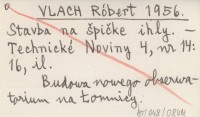 VLACH Róbert 1956.
Stavba na špičke ihly. —
Technické Noviny 4, nr 14:
16, il.
Budowa nowego obserwa-
torium na Łomnicy.